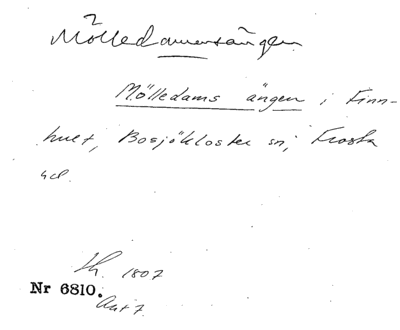 Mölledamsängen
Mölledams ängen i Finn-
hult, Bosjökloster sn; Frosta
hd.
Lh. 1807
Nr 6810.
Akt 7.